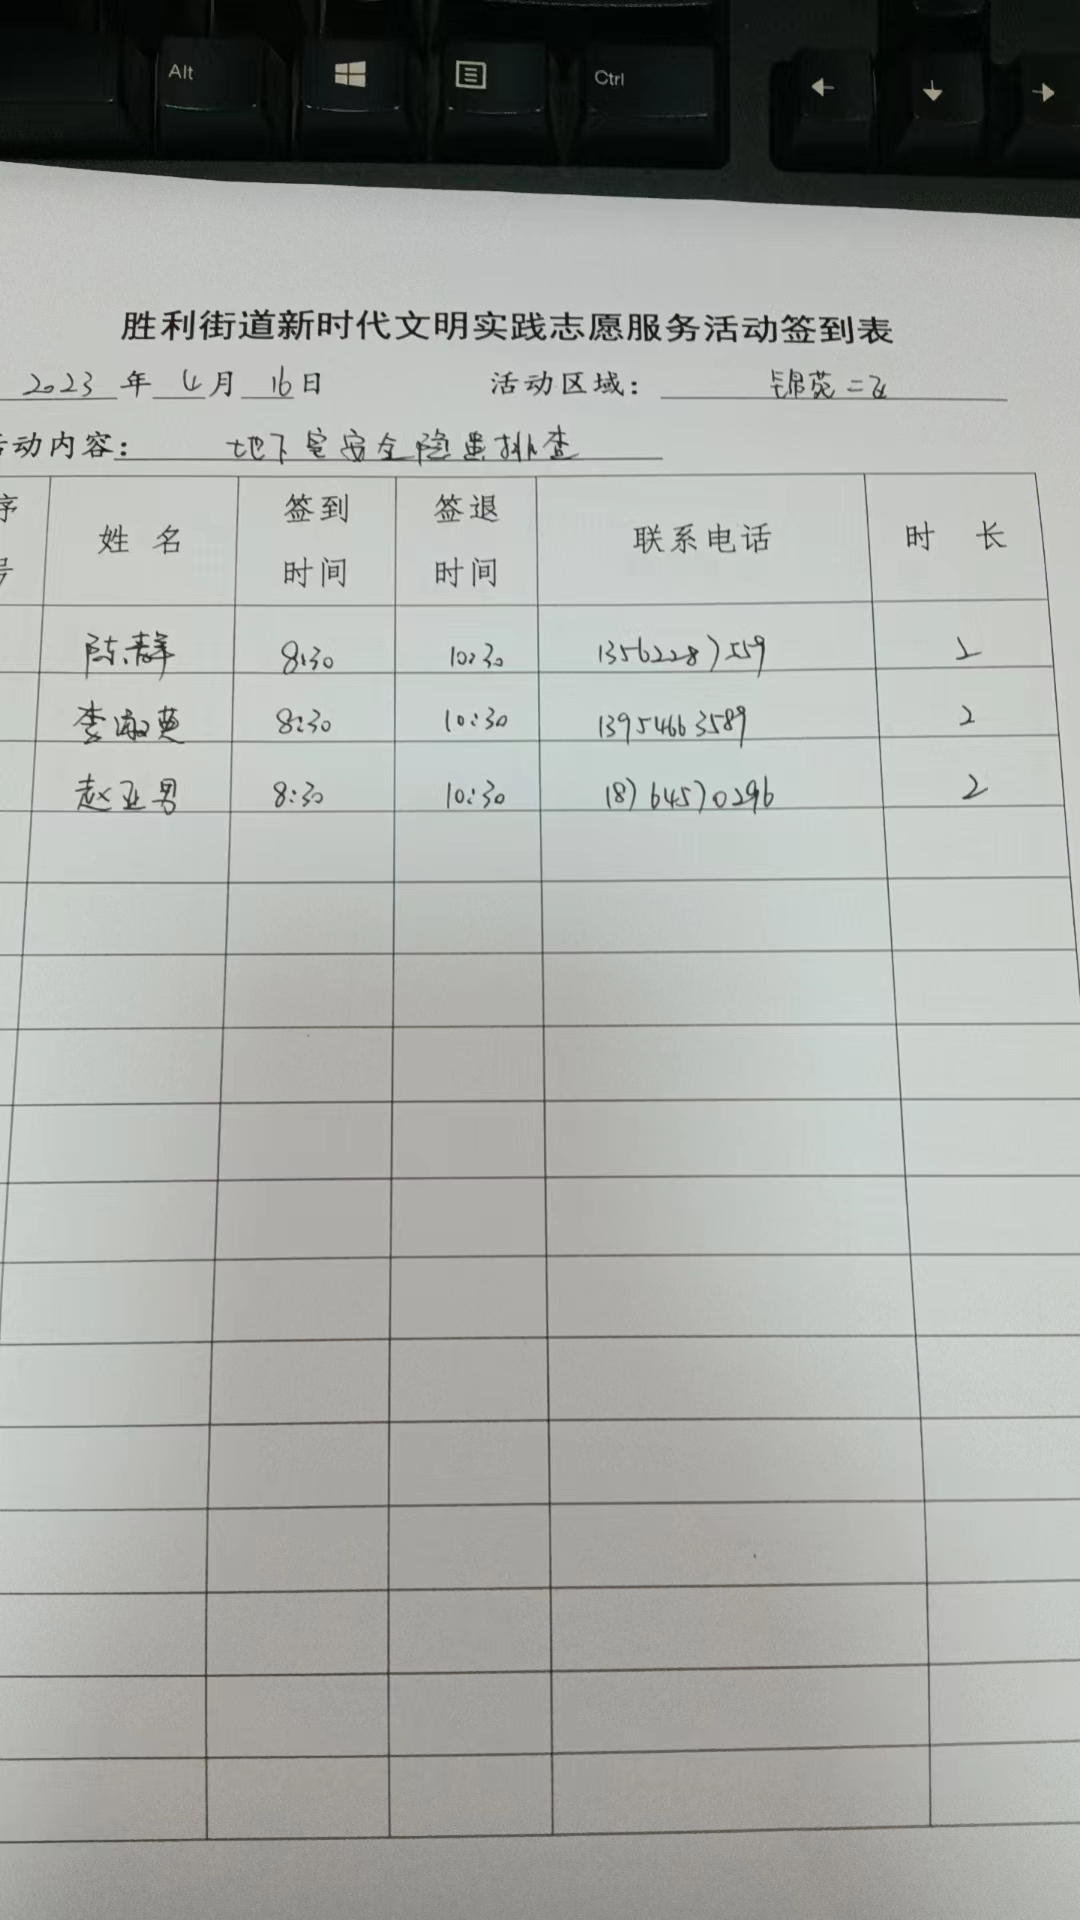 Alt
Ctrl
胜利街道新时代文明实践志愿服务活动签到表
2023 年 4 月 16 日 活动区域: 锦苑二区
活动内容: 地下室安全隐患排查
序号 姓名 签到时间 签退时间 联系电话 时长
陈群 8:30 10:30 13562287559 2
李淑英 8:30 10:30 13954663589 2
赵亚男 8:30 10:30 18764570296 2